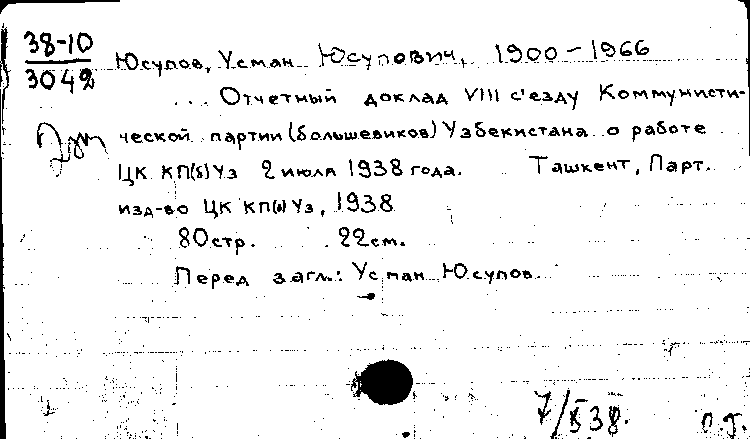 38-10
3042
Юсупов, Усман Юсупович, 1900-1966
... Отчетный доклад VIII с'езду Коммунисти-
ческой партии (большевиков) Узбекистана о работе
ЦК КП(б)Уз 2 июля 1938 года. Ташкент, Парт.
изд-во ЦК КП(б)Уз, 1938
80стр. 22см.
Перед загл.: Усман Юсупов.